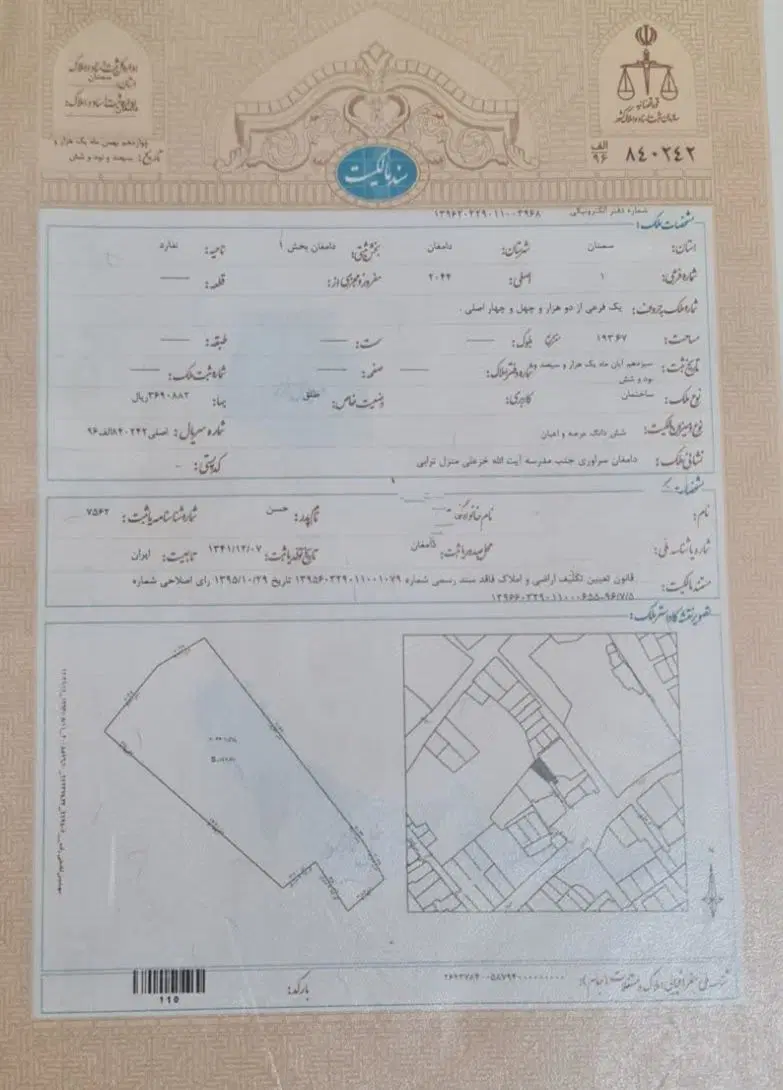 قوه قضائیه
سازمان ثبت اسناد و املاک کشور
اداره کل ثبت اسناد و املاک
استان: سمنان
تاریخ: چهاردهم بهمن ماه یک هزار و
سیصد و نود و شش
الف
۹۶
۸۴۰۲۴۲
سند مالکیت
شماره دفتر الکترونیکی: ۱۳۹۶۲۰۳۲۹۰۱۱۰۰۳۹۶۸
مشخصات ملک:
استان: سمنان شهرستان: دامغان بخش ثبتی: دامغان بخش ۱ ناحیه: ندارد
شماره فرعی: ۱ اصلی: ۲۰۴۴ مفروز و مجزی از: قطعه: ——
شماره ملک بحروف: یک فرعی از دو هزار و چهل و چهار اصلی .
مساحت: ۱۹۳.۶۷ مترمربع بلوک: —— سمت: —— طبقه: ——
تاریخ ثبت: سیزدهم آبان ماه یک هزار و سیصد و نود و شش شماره دفتر املاک: —— صفحه: —— شماره ثبت ملک: ——
نوع ملک: ساختمان کاربری: وضعیت خاص: طلق بها: ۳۶۹۰۸۸۳ریال
نوع و میزان مالکیت: شش دانگ عرصه و اعیان شماره سریال: اصلی ۸۴۰۲۴۲الف۹۶
نشانی ملک: دامغان سراوری جنب مدرسه آیت الله خزعلی منزل ترابی کد پستی: -
مشخصات مالک
نام: نام خانوادگی: نام پدر: حسن شماره شناسنامه یا ثبت: ۷۵۶۲
شماره یا شناسه ملی: محل صدور یا ثبت: دامغان تاریخ تولد یا ثبت: ۱۳۴۱/۱۲/۰۷ تابعیت: ایران
مستند مالکیت: قانون تعیین تکلیف اراضی و املاک فاقد سند رسمی شماره ۱۳۹۵۶۰۳۲۹۰۱۱۰۰۱۰۷۹ تاریخ ۱۳۹۵/۱۰/۲۹ رای اصلاحی شماره
۱۳۹۶۶۰۳۲۹۰۱۱۰۰۰۶۵۵-۹۶/۷/۵
تصویر نقشه کاداستر ملک:
شماره ملی جغرافیایی املاک و مستغلات (جام):
بارکد:
110